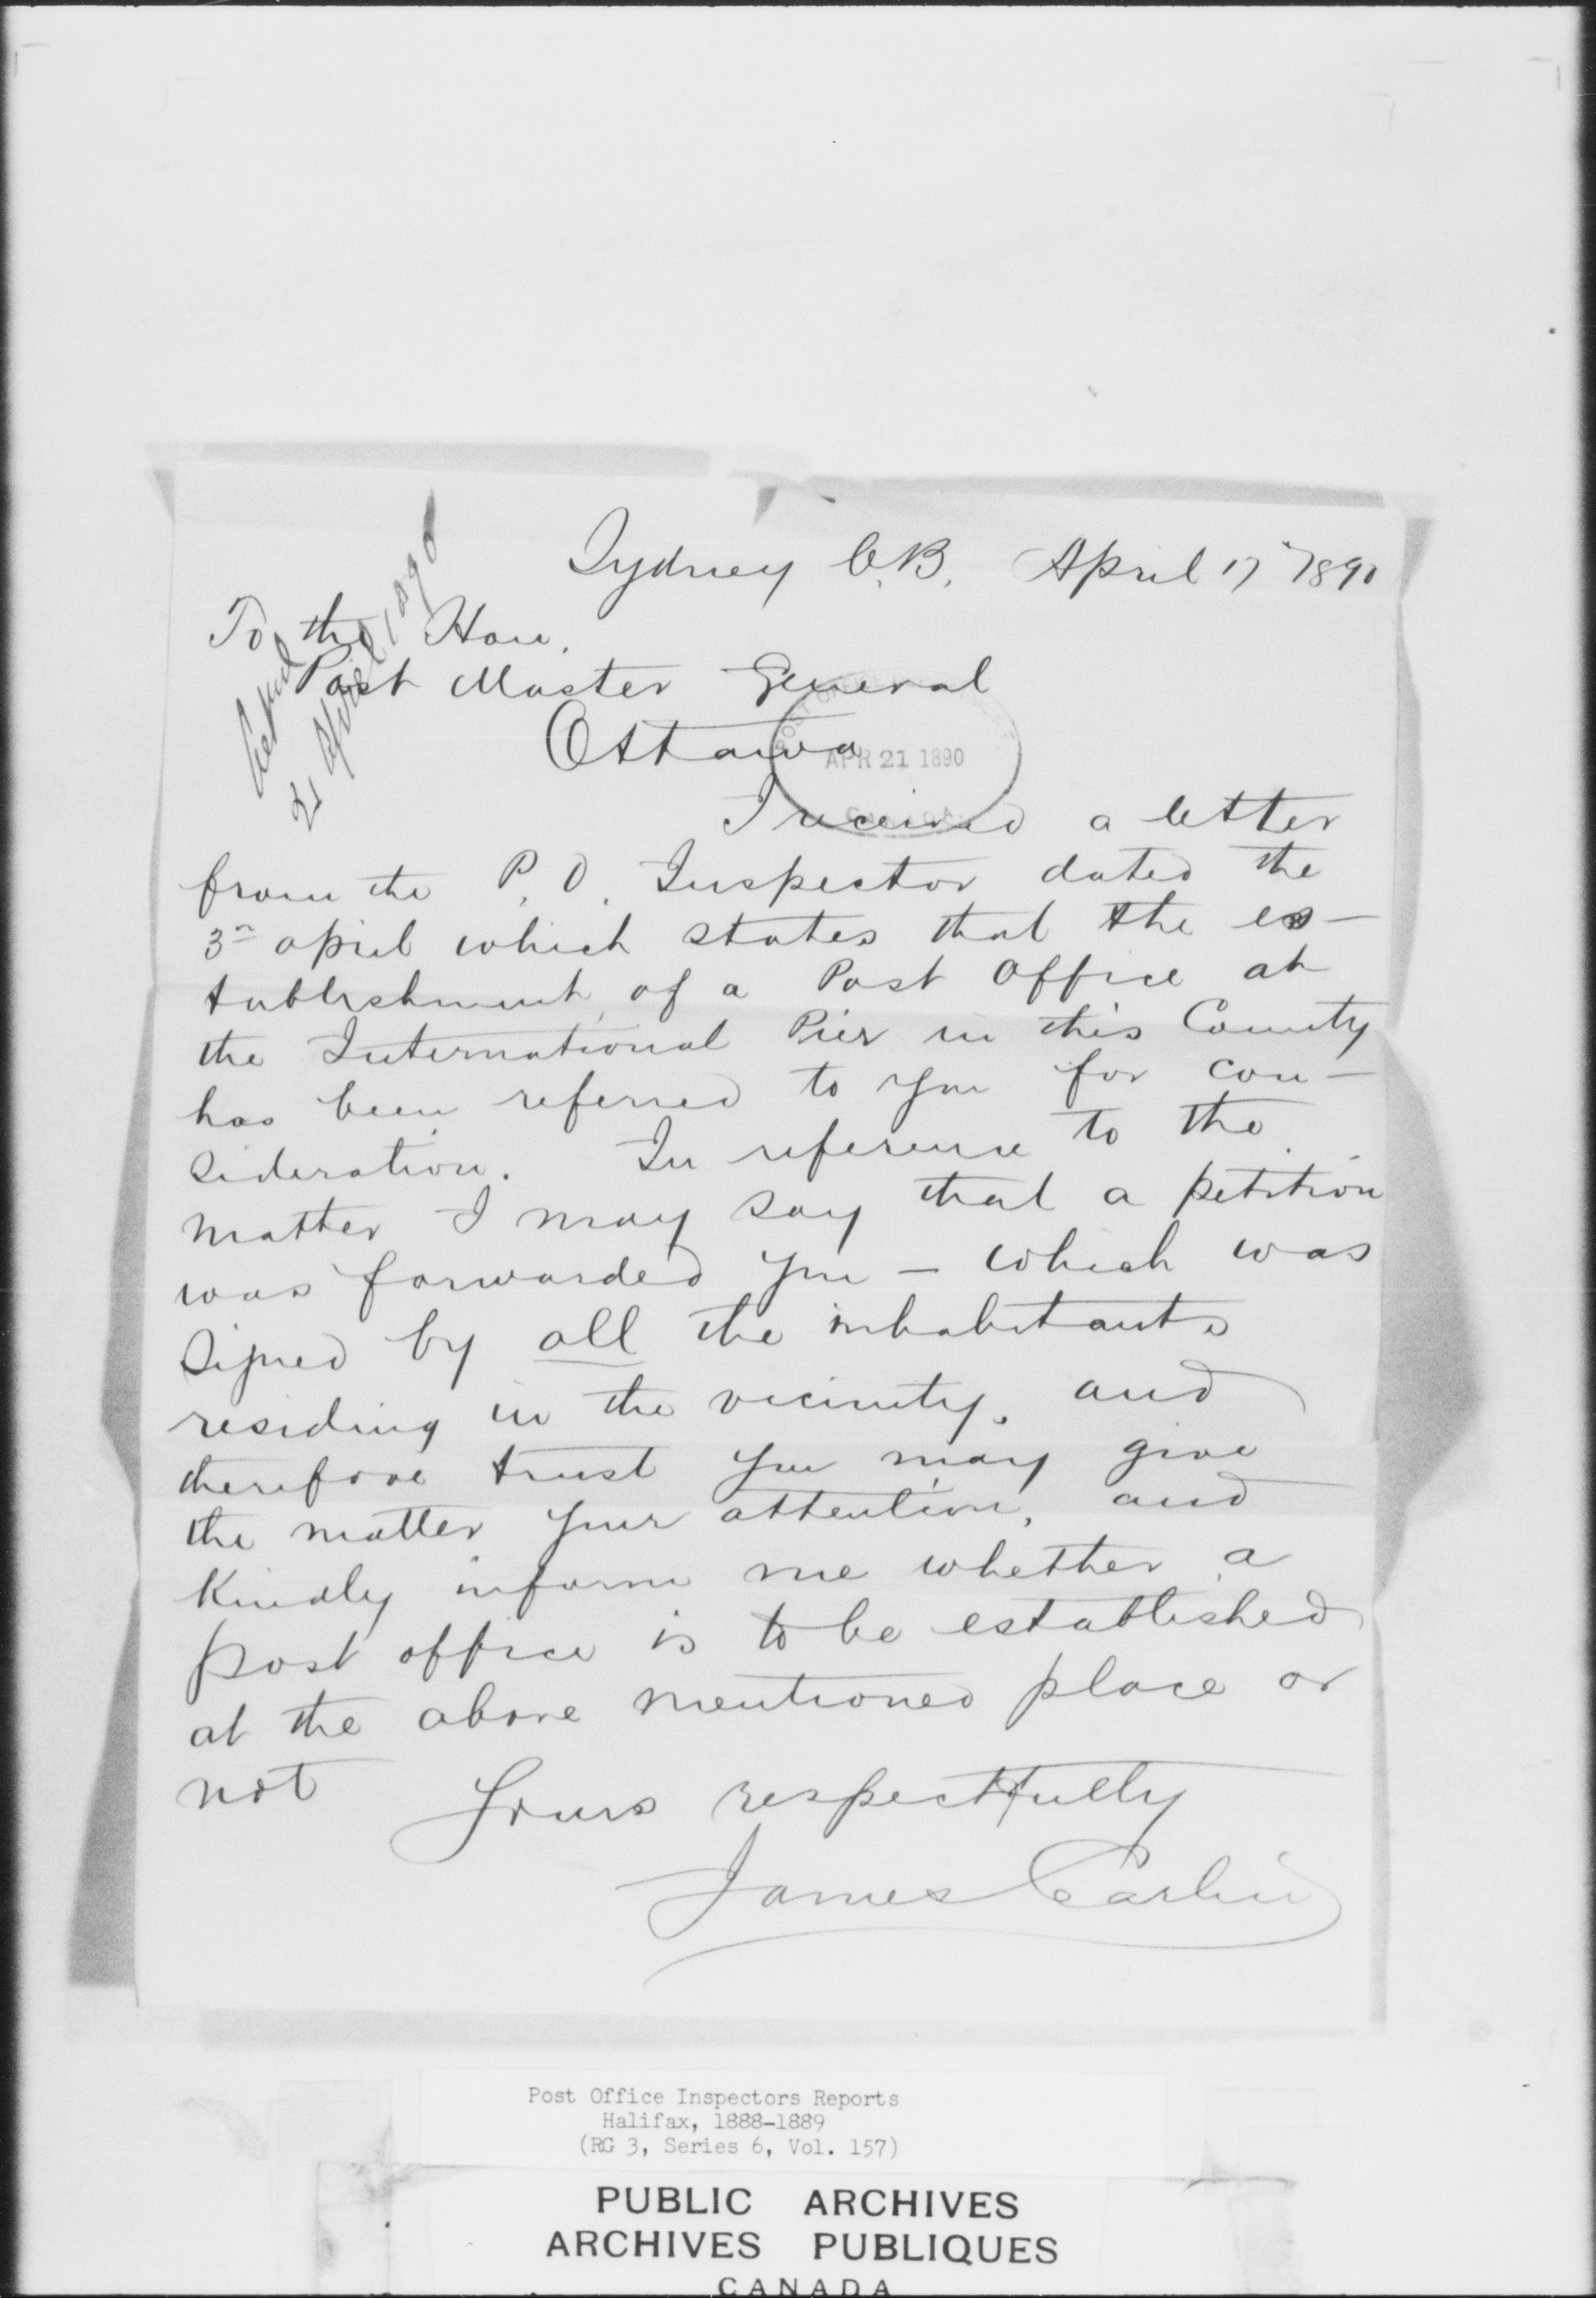 Sydney C.B. April 17 1890
To the Hon.
Post Master General
Ottawa
Acknd
21 April 1890
POST OFFICE
APR 21 1890
CANADA
I received a letter
from the P.O. Inspector dated the
3rd april which states that the es-
tablishment of a Post Office at
the International Pier in this County
has been referred to you for con-
sideration. In reference to the
matter I may say that a petition
was forwarded you - which was
signed by all the inhabitants
residing in the vicinity. and
therefore trust you may give
the matter your attention, and
Kindly inform me whether a
post office is to be established
at the above mentioned place or
not Yours respectfully
James Carlin
Post Office Inspectors Reports
Halifax, 1888-1889
(RG 3, Series 6, Vol. 157)
PUBLIC ARCHIVES
ARCHIVES PUBLIQUES
CANADA